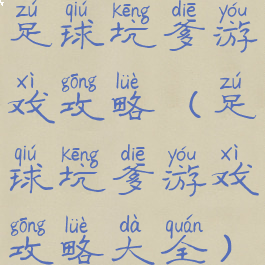 zú qiú kēng diē yóu
足球坑爹游
xì gōng lüè zú
戏攻略（足
qiú kēng diē yóu xì
球坑爹游戏
gōng lüè dà quán
攻略大全）